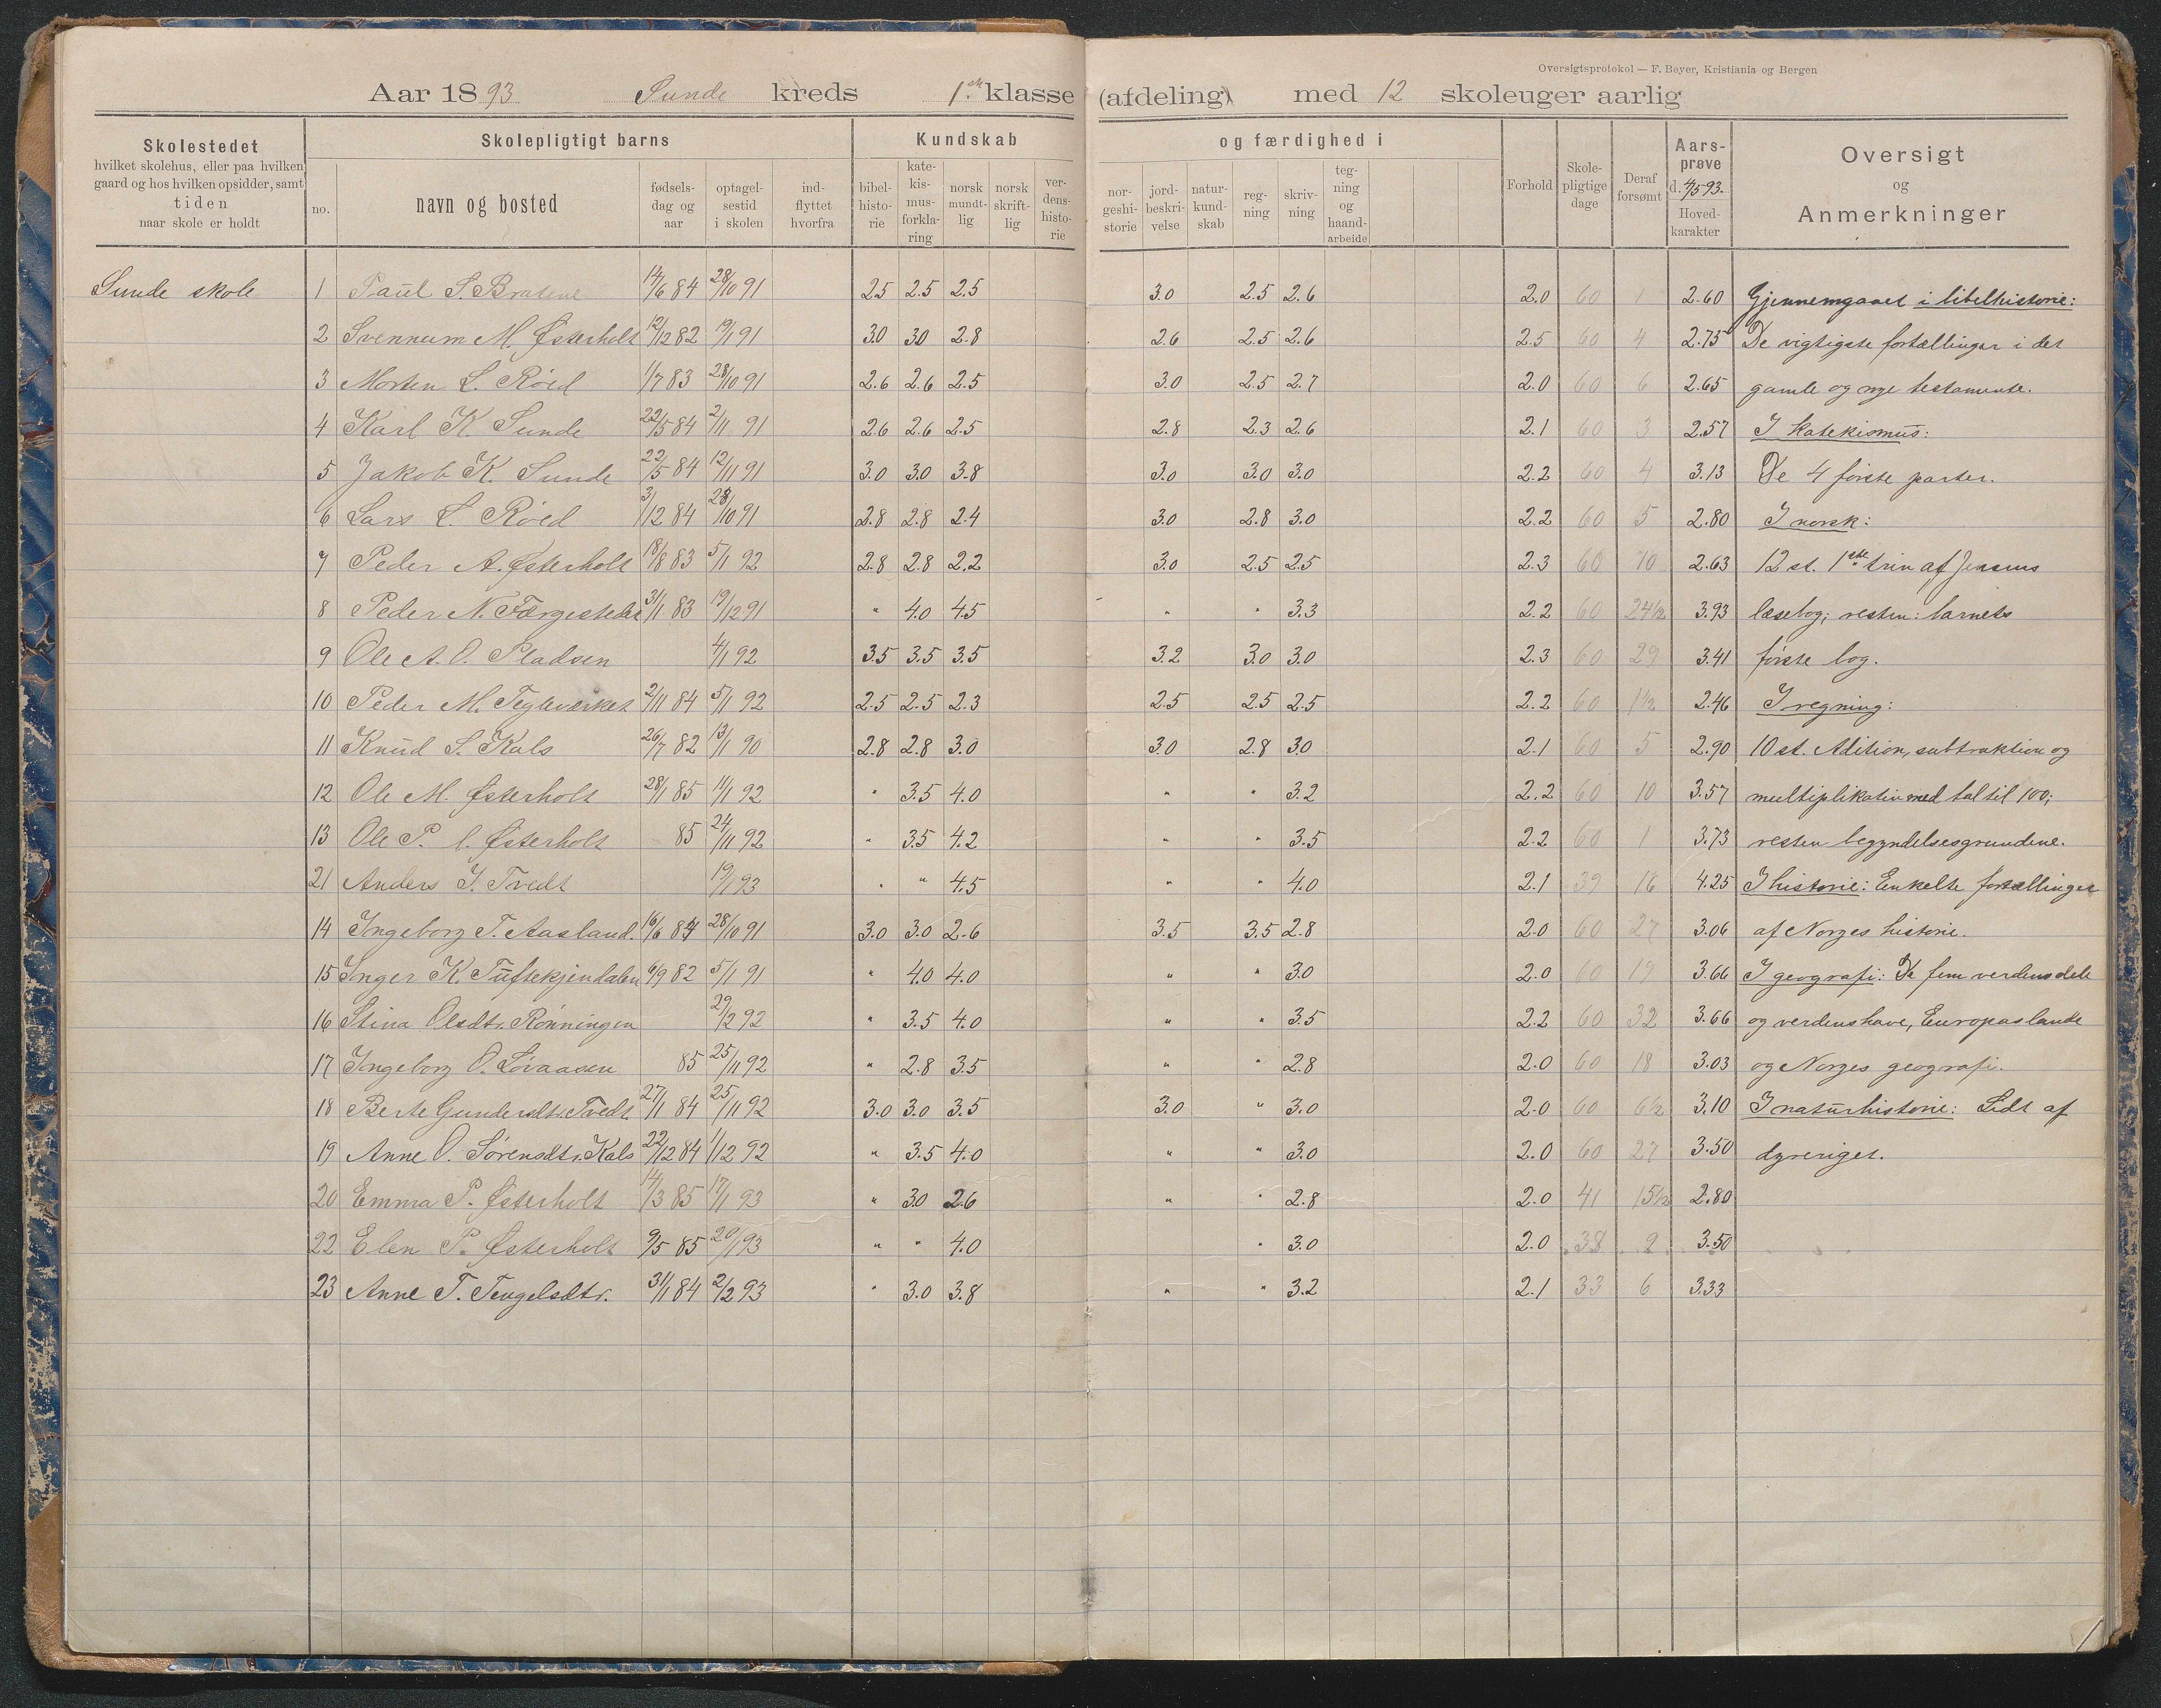 Oversigtsprotokol — F. Beyer, Kristiania og Bergen
Aar 1893 Sunde kreds 1ste klasse (afdeling) med 12 skoleuger aarlig
Skolestedet
hvilket skolehus, eller paa hvilken
gaard og hos hvilken opsidder, samt
tiden
naar skole er holdt
Skolepligtigt barns
no.
navn og bosted
fødsels-
dag og
aar
optagel-
sestid
i skolen
ind-
flyttet
hvorfra
Kundskab
bibel-
histo-
rie
kate-
kis-
mus-
forkla-
ring
norsk
mundt-
lig
norsk
skrift-
lig
ver-
dens-
histo-
rie
og færdighed i
nor-
geshi-
storie
jord-
beskri-
velse
natur-
kund-
skab
reg-
ning
skriv-
ning
teg-
ning
og
haand-
arbeide
Forhold
Skole-
pligtige
dage
Deraf
forsømt
Aars-
prøve
d. 4/5 93.
Hoved-
karakter
Oversigt
og
Anmerkninger
Sunde skole 1 Paul S. Bratene 14/6 84 28/10 91 2.5 2.5 2.5 3.0 2.5 2.6 2.0 60 1 2.60 Gjennemgaaet i bibelhistorie:
2 Svennum M. Østerholt 12/12 82 19/1 91 3.0 3.0 2.8 2.6 2.5 2.6 2.5 60 4 2.75 De vigtigste fortællinger i det
3 Morten L. Röed 1/7 83 28/10 91 2.6 2.6 2.5 3.0 2.5 2.7 2.0 60 6 2.65 gamle og nye testamente.
4 Karl K. Sunde 22/5 84 2/11 91 2.6 2.6 2.5 2.8 2.3 2.6 2.1 60 3 2.57 I katekismus:
5 Jakob K. Sunde 22/5 84 12/11 91 3.0 3.0 3.8 3.0 3.0 3.0 2.2 60 4 3.13 De 4 første parter.
6 Lars L. Röed 3/12 84 28/10 91 2.8 2.8 2.4 3.0 2.8 3.0 2.2 60 5 2.80 I norsk:
7 Peder A. Østerholt 18/8 83 5/1 92 2.8 2.8 2.2 3.0 2.5 2.5 2.3 60 10 2.63 12 st. 1ste trin af Jensens
8 Peder N. Færgestedet 31/1 83 19/12 91 " 4.0 4.5 " " 3.3 2.2 60 24 1/2 3.93 læsebog; resten: barnets
9 Ole A. O. Pladsen 4/1 92 3.5 3.5 3.5 3.2 3.0 3.0 2.3 60 29 3.41 første bog.
10 Peder M. Tegleværket 2/11 84 5/1 92 2.5 2.5 2.3 2.5 2.5 2.5 2.2 60 1 1/2 2.46 I regning:
11 Knud S. Kals 26/7 82 13/1 90 2.8 2.8 3.0 3.0 2.8 3.0 2.1 60 5 2.90 10 st. Adition, subtraktion og
12 Ole M. Østerholt 28/1 85 11/1 92 " 3.5 4.0 " " 3.2 2.2 60 10 3.57 multiplikation med tal til 100;
13 Ole P. Østerholt 85 24/11 92 " 3.5 4.2 " " 3.5 2.2 60 1 3.73 resten begyndelsesgrundene.
21 Anders J. Tvedt 19/1 93 " " 4.5 " " 4.0 2.1 39 16 4.25 I historie: Enkelte fortællinger
14 Ingeborg T. Aasland. 16/6 84 28/10 91 3.0 3.0 2.6 3.5 3.5 2.8 2.0 60 27 3.06 af Norges historie.
15 Inger K. Tuftekjendalen 6/9 82 5/1 91 " 4.0 4.0 " " 3.0 2.0 60 19 3.66 I geografi: De fem verdensdele
16 Stina Olsdtr. Rönningen 29/2 92 " 3.5 4.0 " " 3.5 2.2 60 32 3.66 og verdenshave, Europas lande
17 Ingeborg O. Lövaasen 85 25/11 92 " 2.8 3.5 " " 2.8 2.0 60 18 3.03 og Norges geografi.
18 Berte Gundersdtr. Tvedt 27/11 84 25/11 92 3.0 3.0 3.5 3.0 " 3.0 2.0 60 6 1/2 3.10 I naturhistorie: Lidt af
19 Anne O. Sørensdtr. Kals 22/12 84 1/12 92 " 3.5 4.0 " " 3.0 2.0 60 27 3.50 dyreriget.
20 Emma P. Østerholt 14/3 85 17/1 93 " 3.0 2.6 " " 2.8 2.0 41 15 1/2 2.80
22 Elen P. Østerholt 9/5 85 20/1 93 " " 4.0 " 3.0 2.0 38 2 3.50
23 Anne T. Tengelsdtr. 31/1 84 2/2 93 " 3.0 3.8 " " 3.2 2.1 33 6 3.33